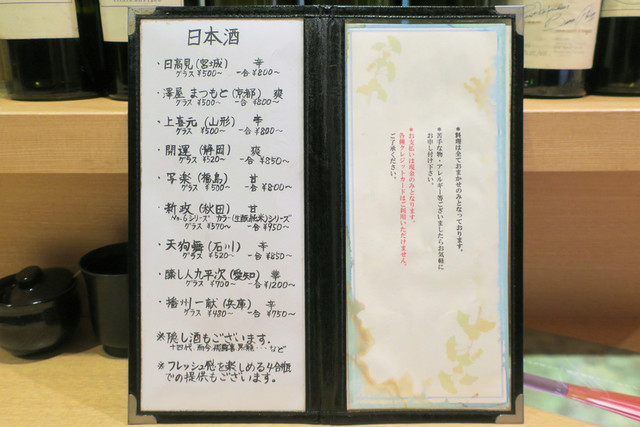 日本酒
・日高見(宮城) 辛
グラス ¥500〜 一合 ¥800〜
・澤屋 まつもと(京都) 爽
グラス ¥500〜 一合 ¥800〜
・上喜元(山形) 辛
グラス ¥500〜 一合 ¥800〜
・開運(静岡) 爽
グラス ¥520〜 一合 ¥850〜
・写楽(福島) 甘
グラス ¥500〜 一合 ¥800〜
・新政(秋田) 甘
No.6シリーズ カラー(生酛純米)シリーズ
グラス ¥570〜 一合 ¥950〜
・天狗舞(石川) 辛
グラス ¥520〜 一合 ¥850〜
・醸し人九平次(愛知) 華
グラス ¥700〜 一合 ¥1200〜
・播州一献(兵庫) 辛
グラス ¥480〜 一合 ¥750〜
※隠し酒もございます。
十四代 而今 飛露喜 黒龍・・・など
※フレッシュ感を楽しめる4合瓶
での提供もございます。
*料理は全ておまかせのみとなっております。
*苦手な物・アレルギー等ございましたらお気軽に
お申し付け下さい。
*お支払いは現金のみとなります。
各種クレジットカードはご利用いただけません。
ご了承ください。